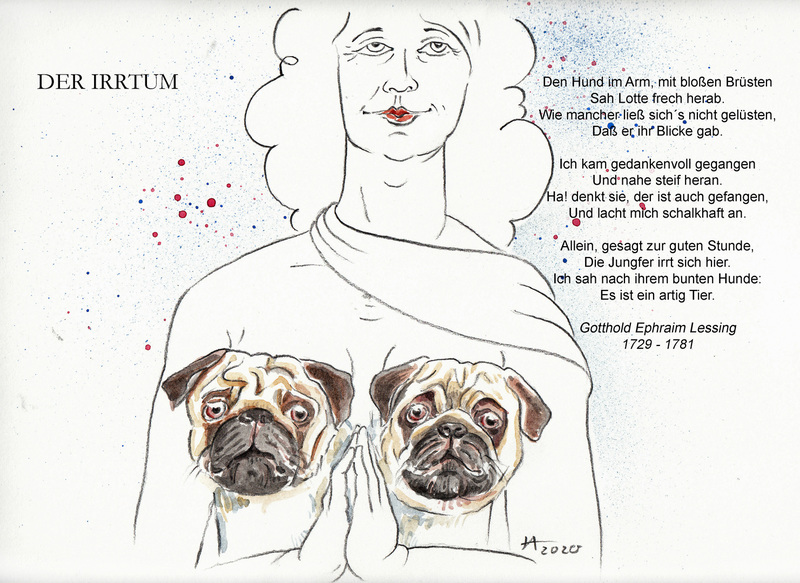 DER IRRTUM
Den Hund im Arm, mit bloßen Brüsten
Sah Lotte frech herab.
Wie mancher ließ sich´s nicht gelüsten,
Daß er ihr Blicke gab.
Ich kam gedankenvoll gegangen
Und nahe steif heran.
Ha! denkt sie, der ist auch gefangen,
Und lacht mich schalkhaft an.
Allein, gesagt zur guten Stunde,
Die Jungfer irrt sich hier.
Ich sah nach ihrem bunten Hunde:
Es ist ein artig Tier.
Gotthold Ephraim Lessing
1729 - 1781
HA 2020